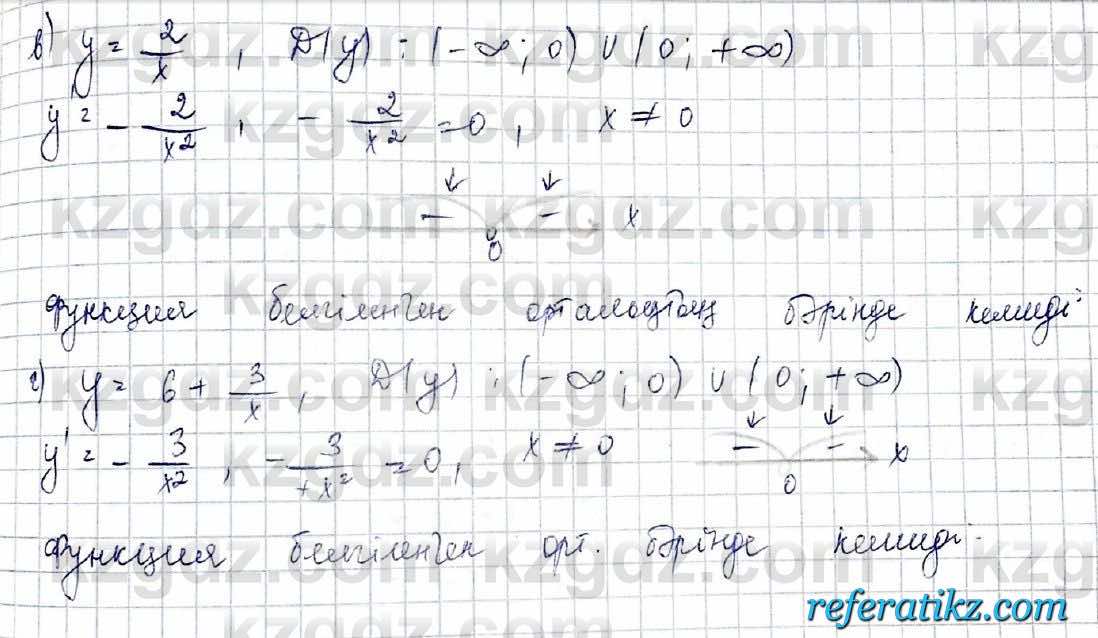 в) y = 2/x, D(y) : (-∞; 0) ∪ (0; +∞)
y' = - 2/x², - 2/x² = 0, x ≠ 0
↓ ↓
- - x
0
Функция белгіленген орталықтың бәрінде кемиді.
г) y = 6 + 3/x, D(y) : (-∞; 0) ∪ (0; +∞)
↓ ↓
y' = - 3/x², - 3/+x² = 0, x ≠ 0 - - x
0
Функция белгіленген орт. бәрінде кемиді.
referatikz.com
kzgdz.com